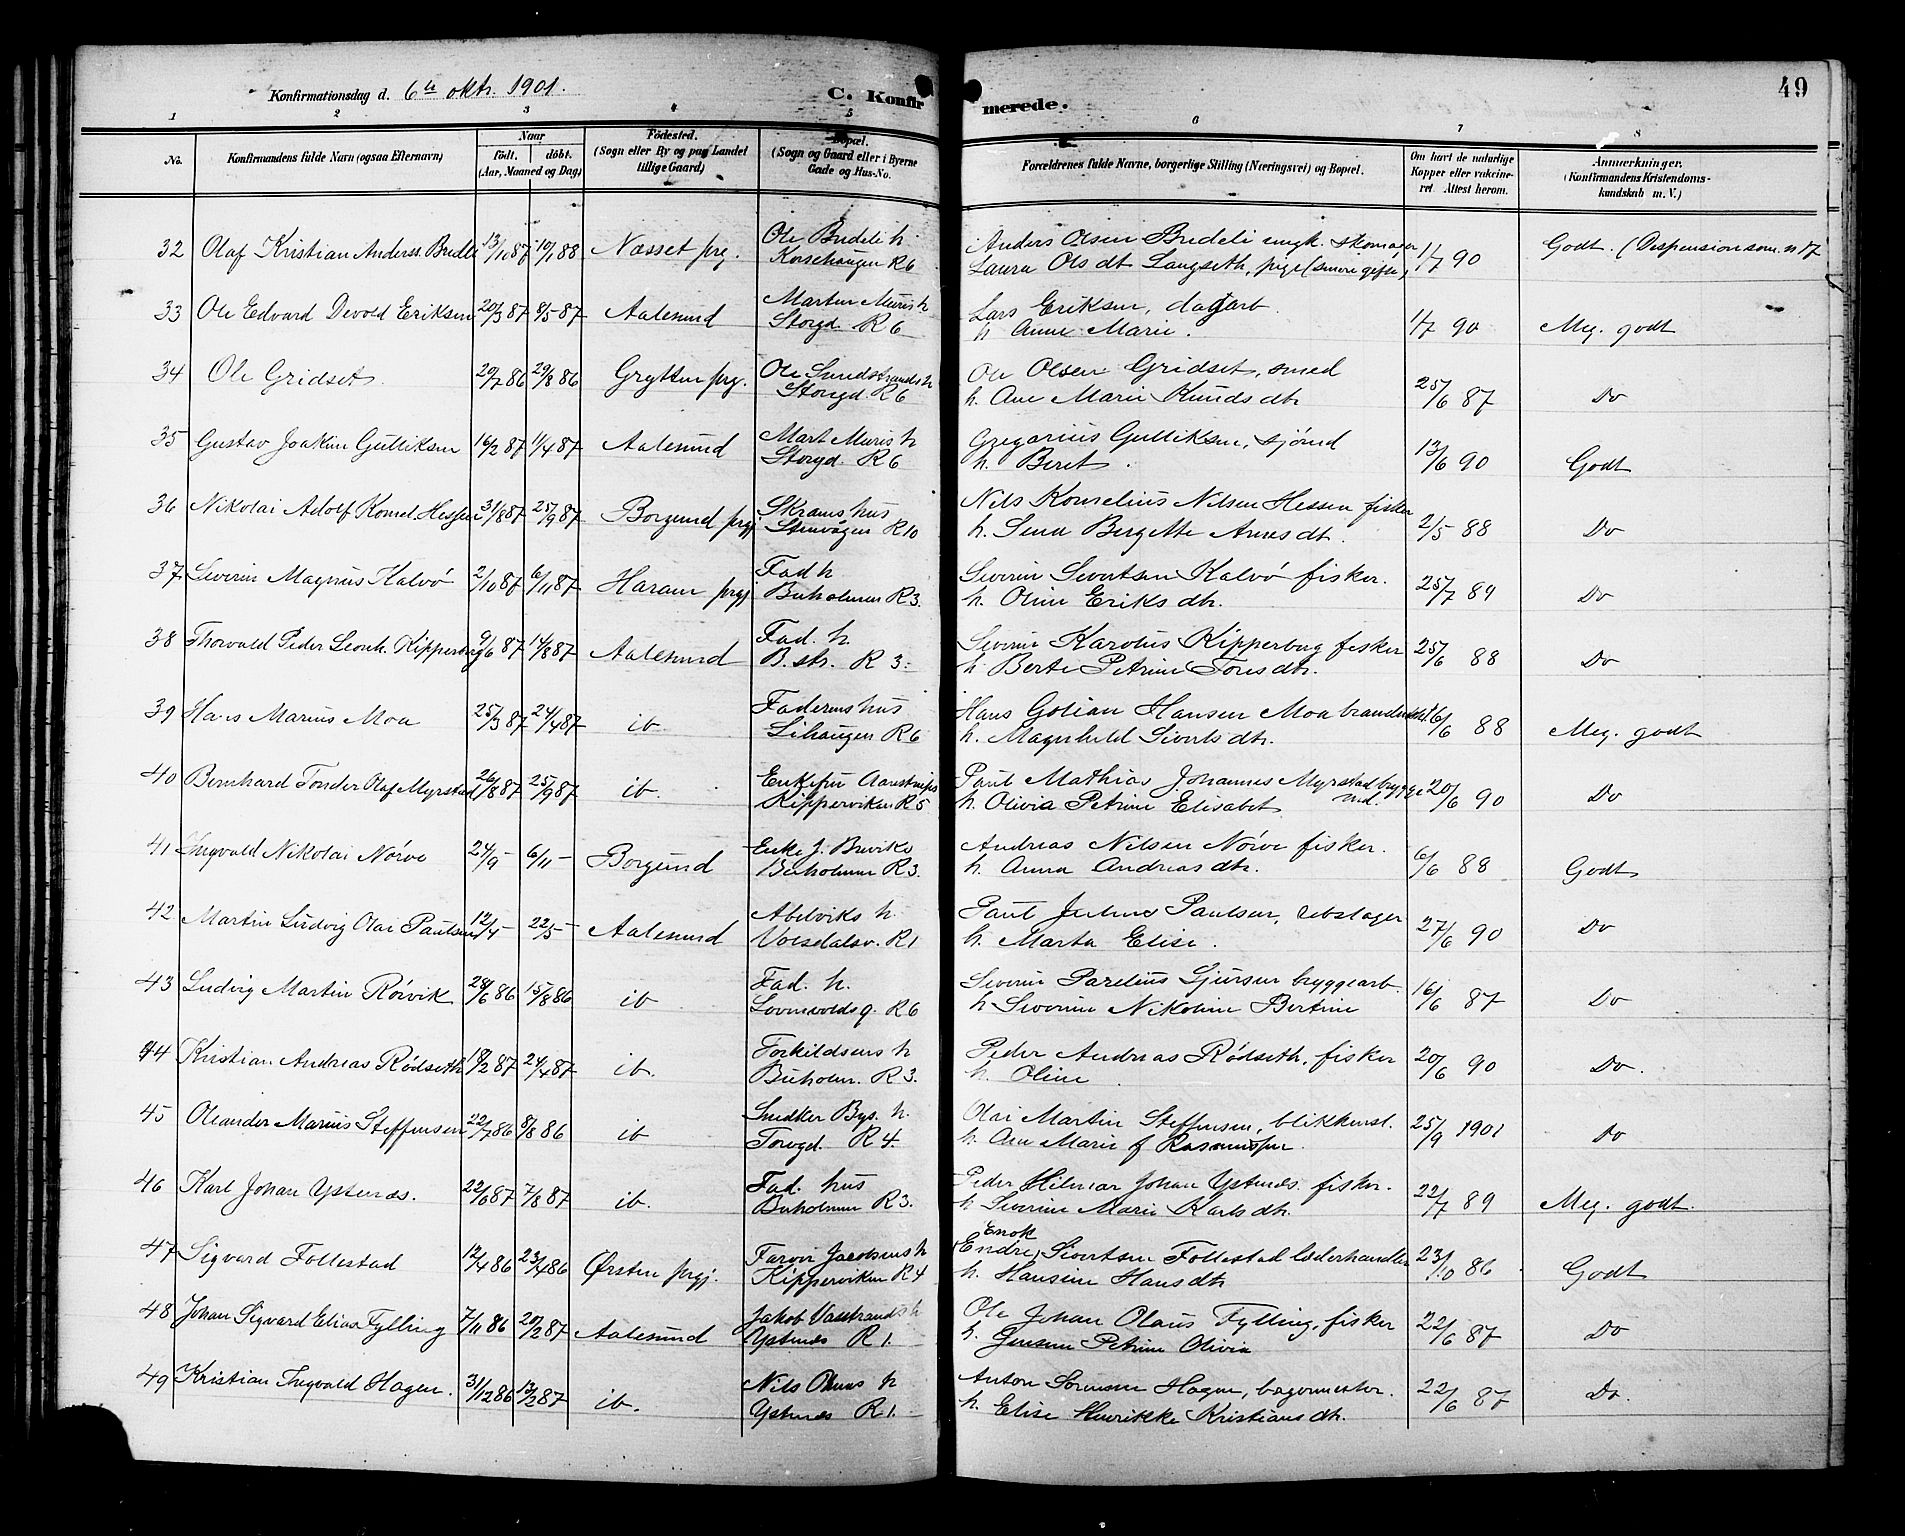 49
Konfirmationsdag d. 6te oktr. 1901.
C. Konfirmerede.
1 2 3 4 5 6 7 8
No. Konfirmandens fulde Navn (ogsaa Efternavn) Naar født. døbt. (Aar, Maaned og Dag) Fødested. (Sogn eller By og paa Landet tillige Gaard) Bopæl. (Sogn og Gaard eller i Byerne Gade og Hus-No. Forældrenes fulde Navne, borgerlige Stilling (Næringsvei) og Bopæl. Om havt de naturlige Kopper eller vakcineret. Attest herom. Anmærkninger. (Konfirmandens Kristendomskundskab m. V.)
32 Olaf Kristian Anderss. Budeli 13/10 87 10/1 88 Næsset prg. Ole Budeli h. Anders Olsen Budeli ungk. skomager 1/7 90 Godt. (Dispension som n 17
Korsehaugen R 6 Laura Olsdt Langseth, pige (senere gift)
33 Ole Edvard Devold Eriksen 20/3 87 8/5 87 Aalesund Martin Muris h Lars Eriksen, dagarb. 1/7 90 Meg. godt
Storgd. R 6 h. Anne Marie.
34 Ole Gridset 20/7 86 29/8 86 Grytten prg. Ole Smedstrands h Ole Olsen Gridset, smed 25/6 87 Do
Storgd. R 6 h. Ane Marie Knudsdtr
35 Gustav Joakim Gulliksen 16/2 87 11/4 87 Aalesund Mart Muris h Gregarius Gulliksen, sjømd 13/6 90 Godt
Storgd. R 6 h. Beret.
36 Nikolai Adolf Kornel. Hessen 31/8 87 25/9 87 Borgund prgj Skrams hus Nils Kornelius Nilsen Hessen fisker 2/5 88 Do
Stenvågen R 10 h. Sena Bergette Arnesdt.
37 Severin Magnus Kalvø 2/10 87 6/11 87 Haram prgj Fad h Severin Severtsen Kalvø fisker. 25/7 89 Do
Buholmen R 3. h. Oline Eriksdtr.
38 Thorvald Peder Leonh. Kipperberg 9/6 87 14/8 87 Aalesund Fad. h. Severin Karolus Kipperberg fisker 25/6 88 Do
B. str. R 3. h. Berte Petrine Toresdtr.
39 Hans Marius Moa 25/3 87 24/4 87 ib Faderens hus Hans Gotian Hansen Moa 6/6 88 Meg. godt
Lihaugen R 6 h. Magnhild Sivertsdtr.
40 Bernhard Tonder Olaf Myrstad 26/8 87 25/9 87 ib. Enkefru Kipperviken R 5 Paul Mathias Johannes Myrstad brygge md. 20/6 90 Do
h. Olivia Petrine Elisabet
41 Ingvald Nikolai Nørve 24/9 – 6/11 – Borgund Enke J. Breviks Andreas Nilsen Nørve fisker. 6/6 88 Godt
Buholmen R 3. h. Anna Andreasdtr.
42 Martin Ludvig Olai Paulsen 12/4 – 22/5 – Aalesund Abelviks h Paul Julius Paulsen, rebslager 27/6 90 Do
Volsdalsv. R 1 h. Marta Elise.
43 Ludvig Martin Rørvik 28/6 86 15/8 86 ib Fad. h. Severin Parelius Gjørsen bryggearb. 16/6 87 Do
Lovenvoldsg. R 6 h Severine Nikoline Bertine
44 Kristian Andreas Rødseth 18/2 87 24/4 87 ib. Torkildsens h Peder Andreas Rødseth, fisker 20/6 90 Do.
Buholm. R 3. h. Oline
45 Oleander Marius Steffensen 22/7 86 8/8 86 ib Snedker Bys. h. Olai Martin Steffensen, blikkensl. 25/9 1901 Do
Torvgd. R 4. h. Ane Marie f Rasmussen
46 Karl Johan Ystenæs. 22/6 87 7/8 87 ib. Fad. hus Peder Hilmar Johan Ystenæs. fisker. 22/7 89 Meg. godt.
Buholmen R 3. h Severine Marie Karlsdtr.
47 Sigvard Follestad 12/4 86 23/4 86 Ørsten prgj. Farver Jacobsens h Enok (Endre) Sivertsen Follestad læderhandler 23/10 86 Godt
Kipperviken R 4 h. Hansine Hansdtr
48 Johan Sigvard Elias Fylling 7/11 86 20/2 87 Aalesund Jakob Vasstrands h Ole Johan Olaus Fylling, fisker 22/6 87 Do
Ystenæs R 1. h. Jensine Petrine Olivia
49 Kristian Ingvald Hagen. 31/12 86 13/2 87 ib. Nils h Anton Sørensen Hagen, bagermester. 22/6 87 Do.
Ystenæs R 1. h. Elise Henrikke Kristiansdtr.